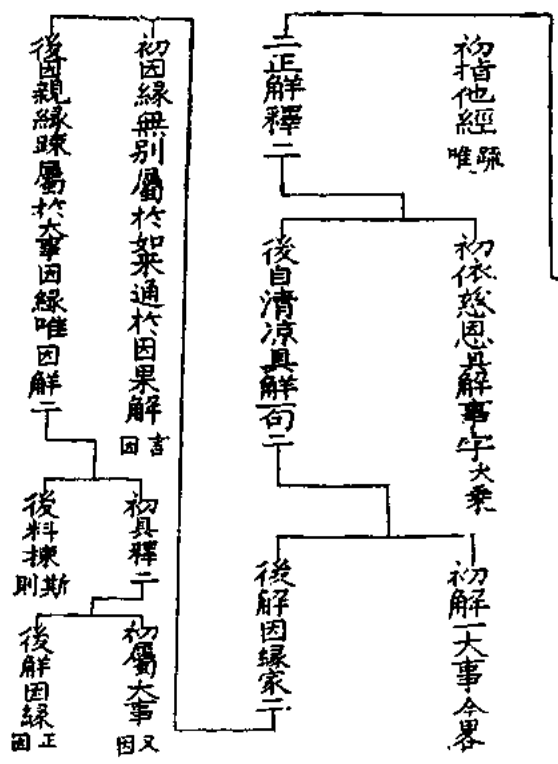 初指他經 疏唯
二正解釋二
初依慈恩具解事字 大乘
後自清涼具解一句二
初解一大事 今畧
後解因緣家二
初因緣無別屬於如來通於因果解 言因
後因親緣疎屬於大事因緣唯因解二
初具釋二
後料揀 斯則
初屬大事 又因
後解因緣 正因